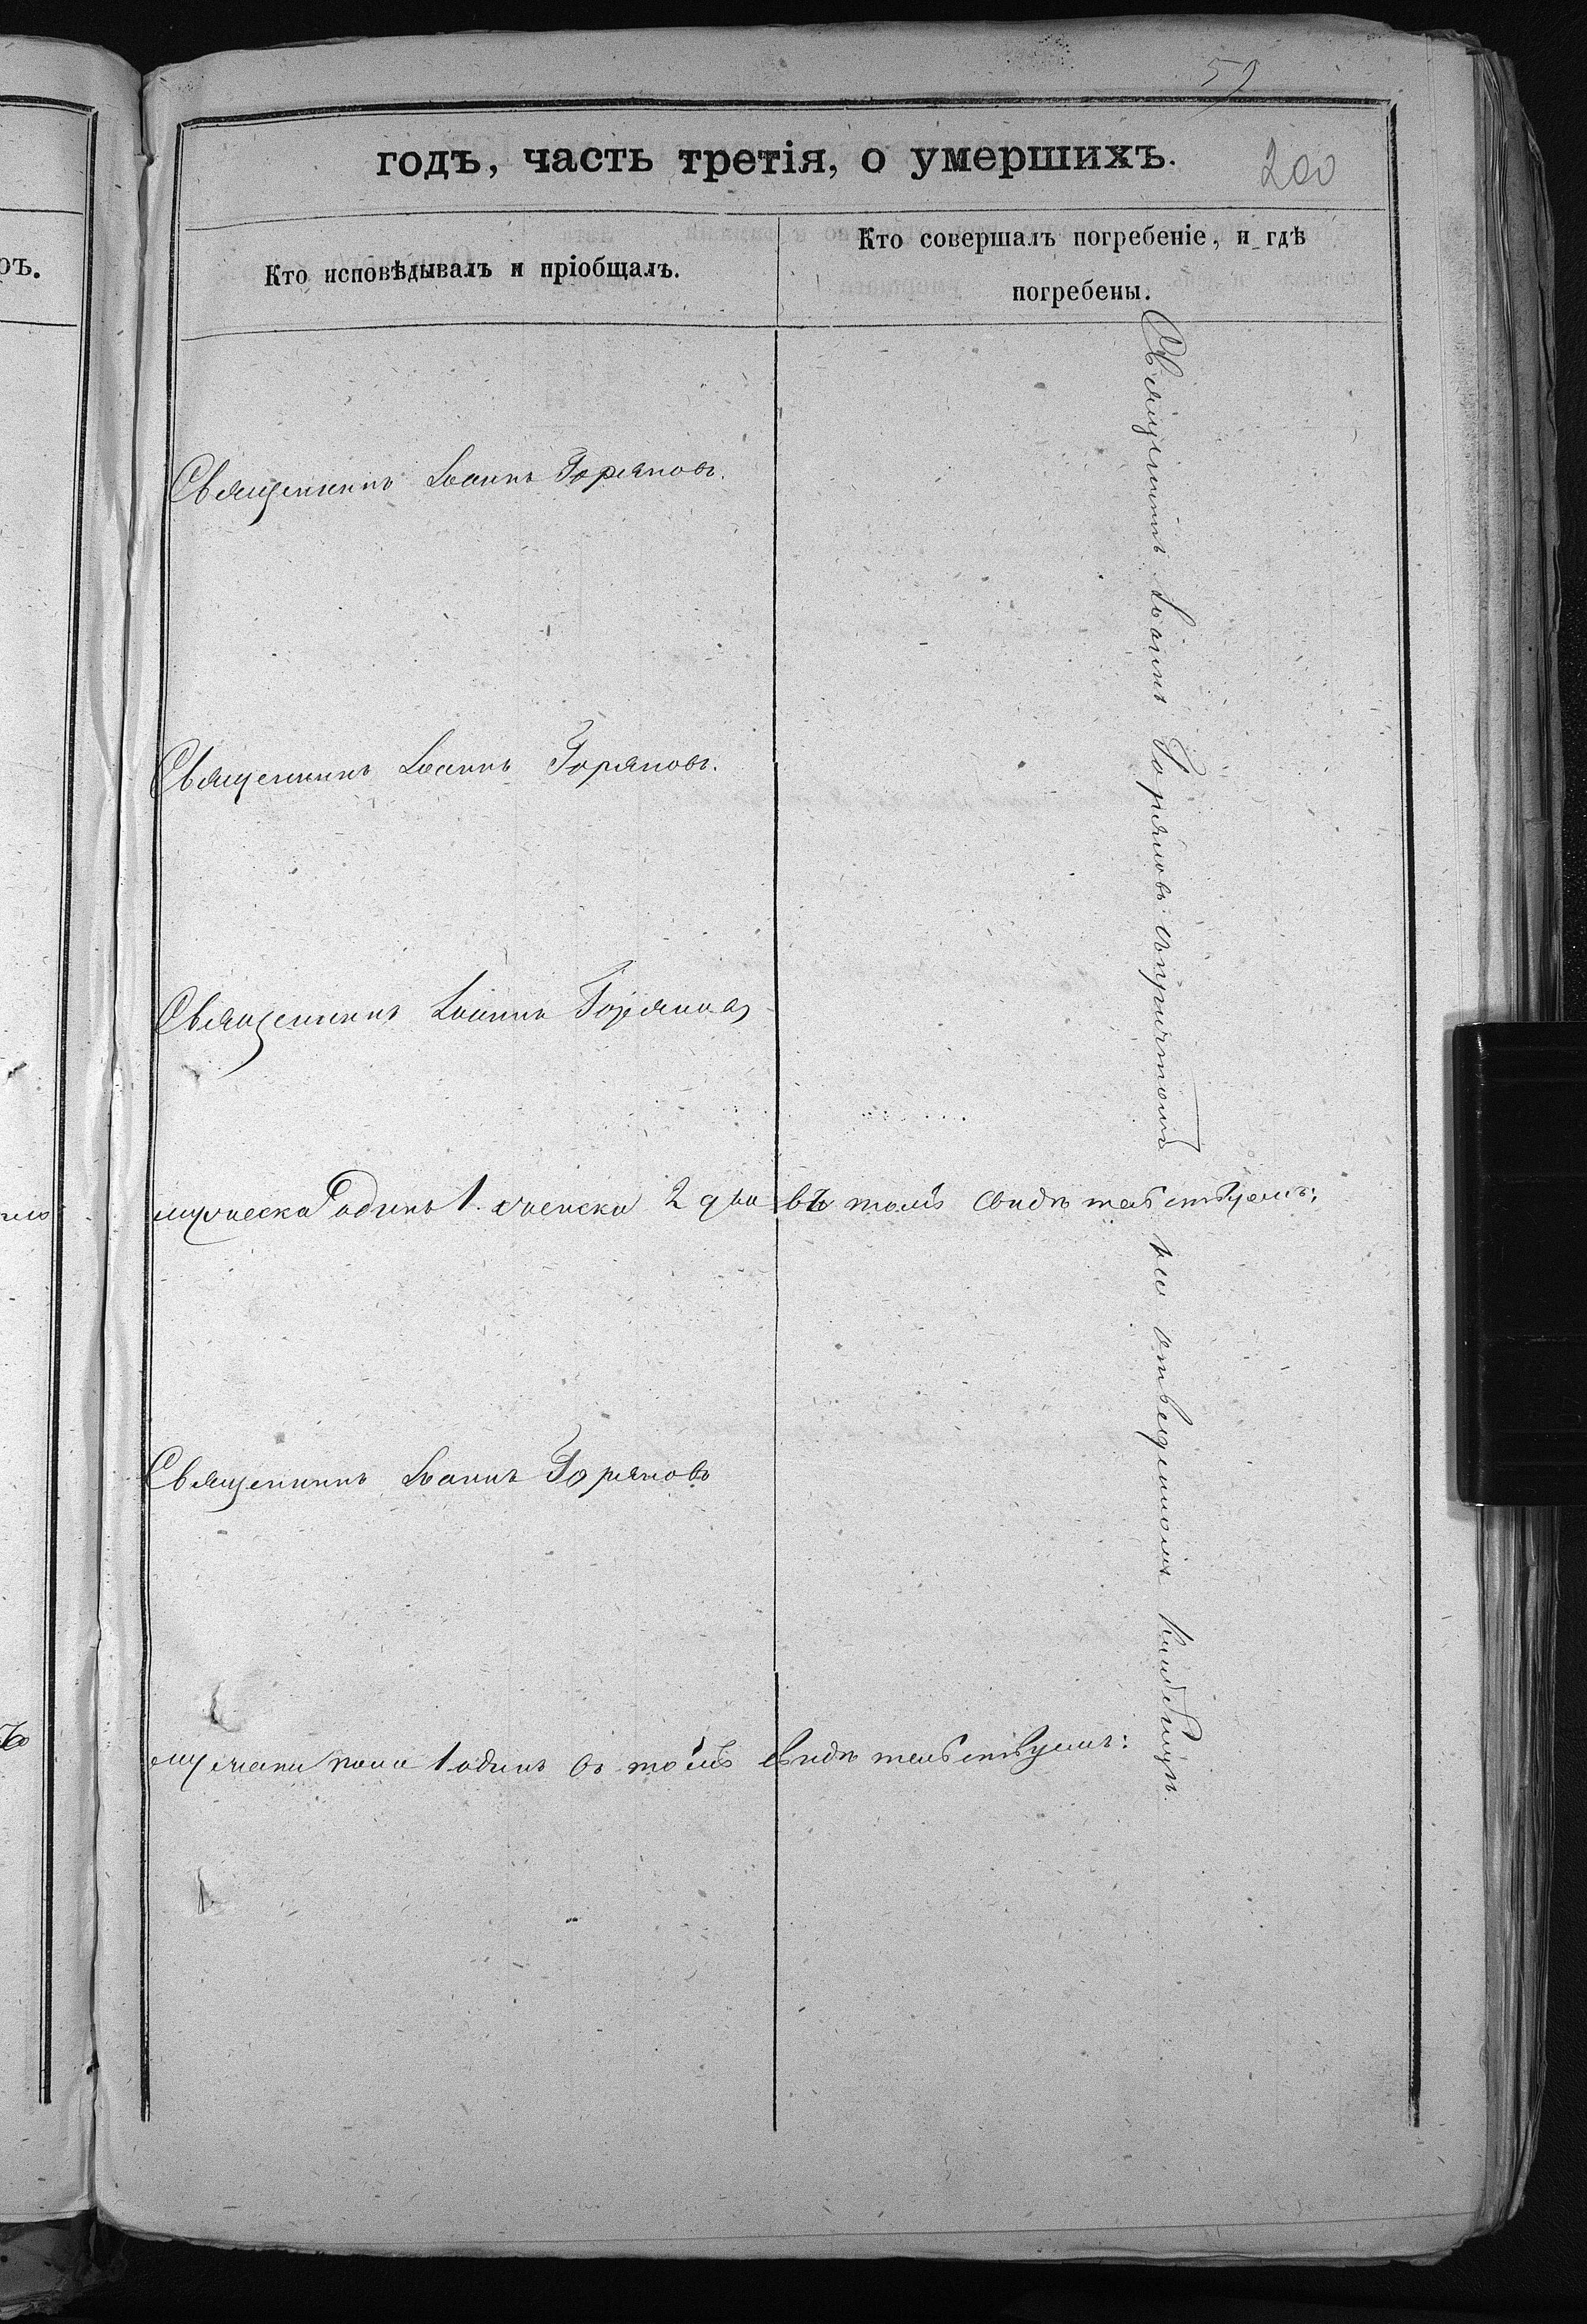 59
годъ, часть третія, о умершихъ.
200
ръ.
Кто исповѣдывалъ и пріобщалъ.
Кто совершалъ погребеніе, и гдѣ
погребены.
Священникъ Іоаннъ Горяновъ.
Священникъ Іоаннъ Горяновъ.
Священникъ Іоаннъ Горяновъ
мужеска одинъ 1. женска 2 два въ томъ свидѣтельствуемъ:
Священникъ Іоаннъ Горяновъ
1 одинъ въ томъ свидѣтельствуемъ:
Священникъ Іоаннъ Горяновъ съ причтомъ на отведенномъ кладбищѣ.